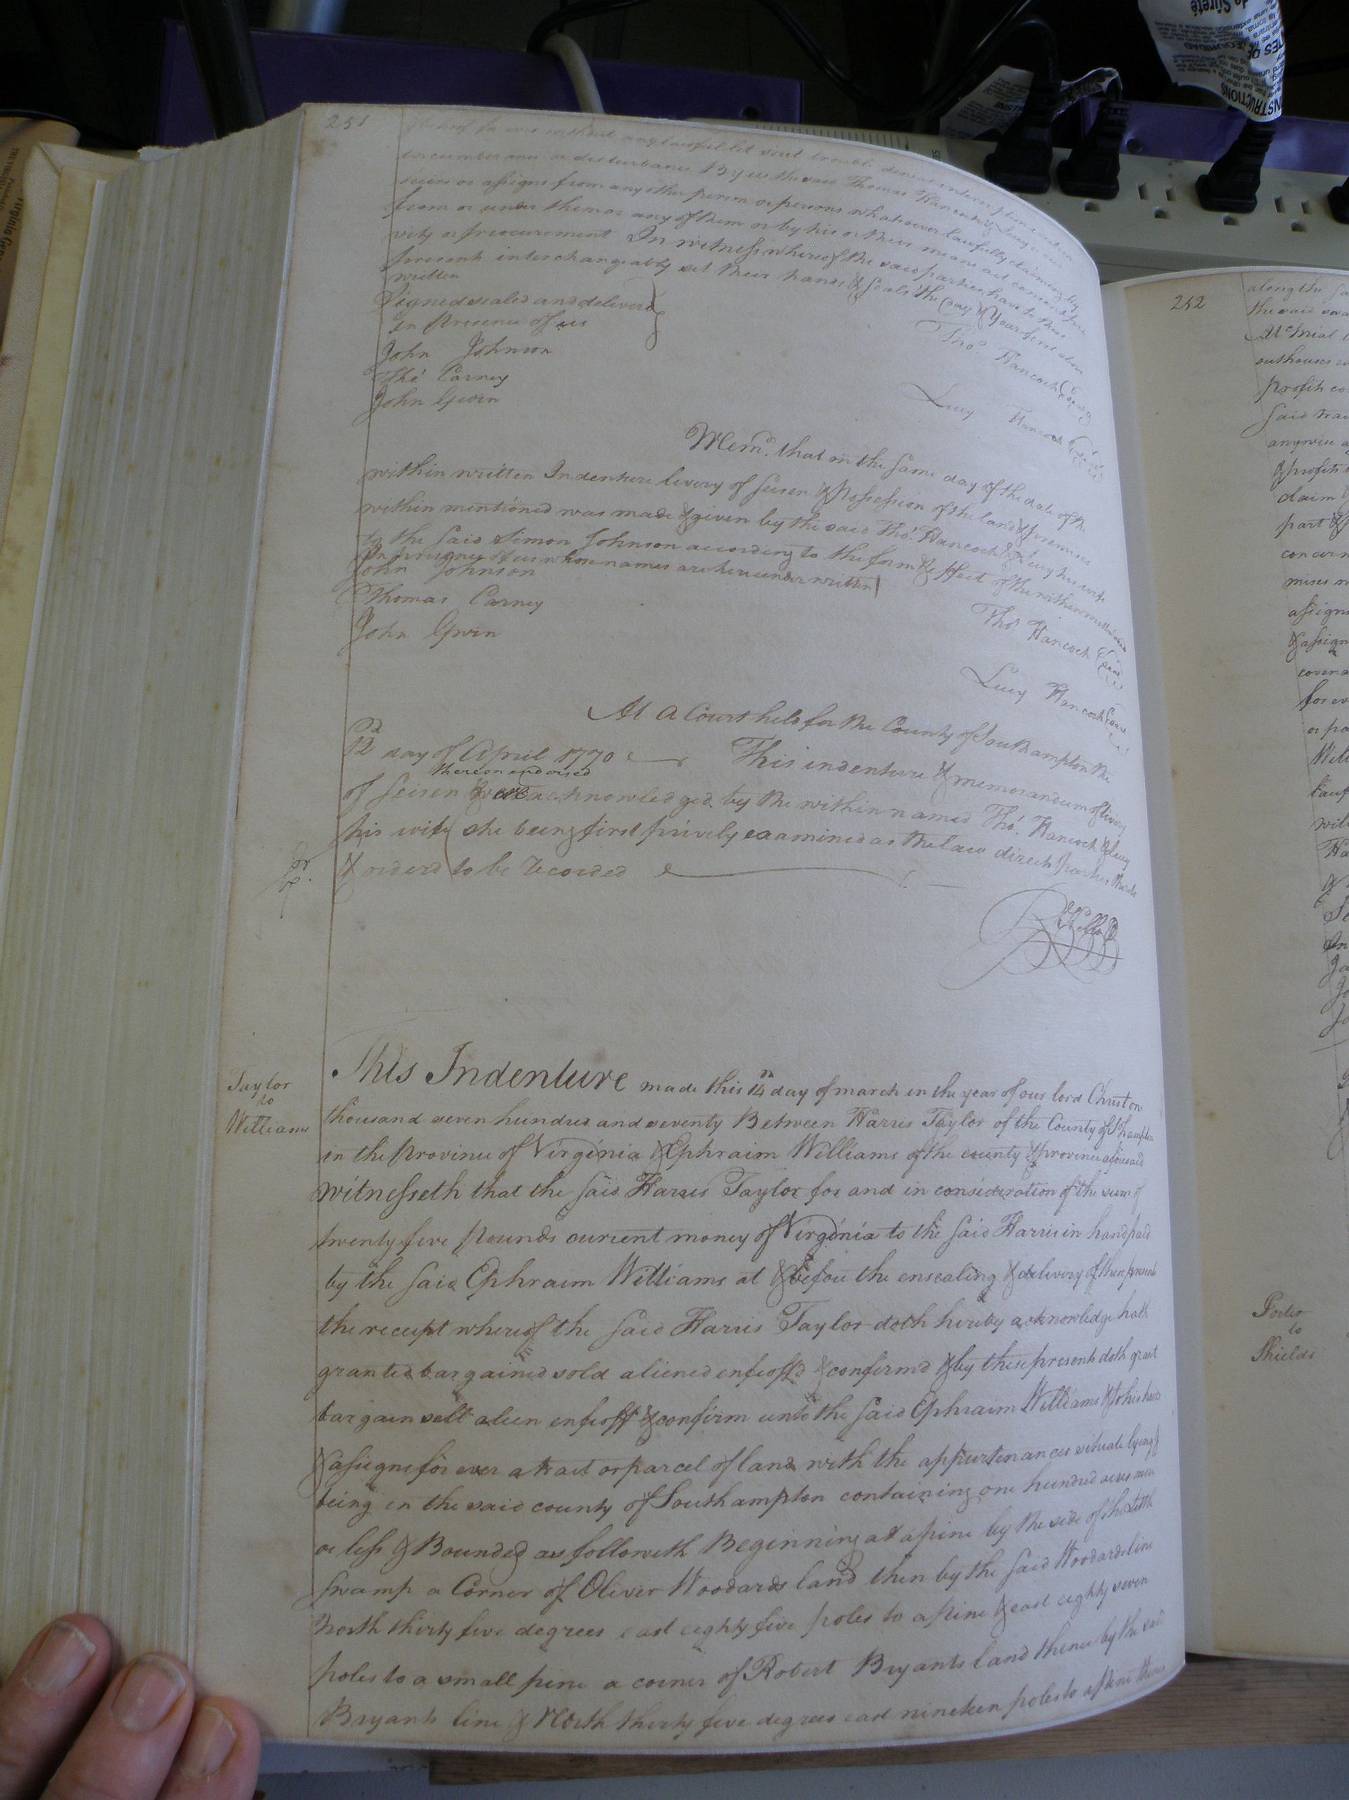 251
encumbrance or disturbance By us the said Thomas Hancock & Lucy
heirs or assigns from any other person or persons whatsoever lawfully claiming by
from or under them or any of them or by his or their means act consent
vity or procurement In witness whereof the said parties have to these
presents interchangeably set their hands & seals the day & Year first above
written
Signed sealed and delivered
in Presence of us
John Johnson
Tho.s Carney
John Gwin
Tho.s Hancock
Lucy Hancock
Mem.d that on the same day of the date of the
within written Indenture livery of seisen & possession of the land & premises
within mentioned was made & given by the said Tho.s Hancock & Lucy his wife
to the said Simon Johnson according to the form & effect of the within written
In presence of us whose names are hereunder written
John Johnson
Thomas Carney
John Gwin
Tho.s Hancock
Lucy Hancock
At a Court held for the County of Southampton the
12 day of April 1770 This indenture & memorandum of livery
thereon endorsed
of Seisen were acknowledged by the within named Tho.s Hancock & Lucy
his wife she being first privily examined as the law directs
& orderd to be recorded
Taylor
to
Williams
This Indenture made this 14 day of march in the year of our lord Christ one
thousand seven hundred and seventy Between Harris Taylor of the County of
in the Province of Virginia & Ephraim Williams of the county & province aforesaid
witnesseth that the said Harris Taylor for and in consideration of the sum of
twenty five Pounds current money of Virginia to the said Harris in hand paid
by the said Ephraim Williams at & before the ensealing & delivery of these presents
the receipt whereof the said Harris Taylor doth hereby acknowledge hath
granted bargained sold aliened enfeoffd & confirmd & by these presents doth grant
bargain sell alien enfeoff & confirm unto the said Ephraim Williams & to his heirs
& assigns for ever a tract or parcel of land with the appurtenances situate lying &
being in the said county of Southampton containing one hundred acres more
or less & Bounded as followeth Beginning at a pine by the side of the Little
swamp a Corner of Oliver Woodards land then by the said Woodards line
North thirty five degrees east eighty five poles to a pine & east eighty seven
poles to a small pine a corner of Robert Bryants land thence by the said
Bryants line & North thirty five degrees east nineteen poles to a pine thence
252
along the
the said
outhouses
profit
said
anywise
& profits
claim
part &
concern
mises
assigns
& assign
for ever
Porter
to
Shields